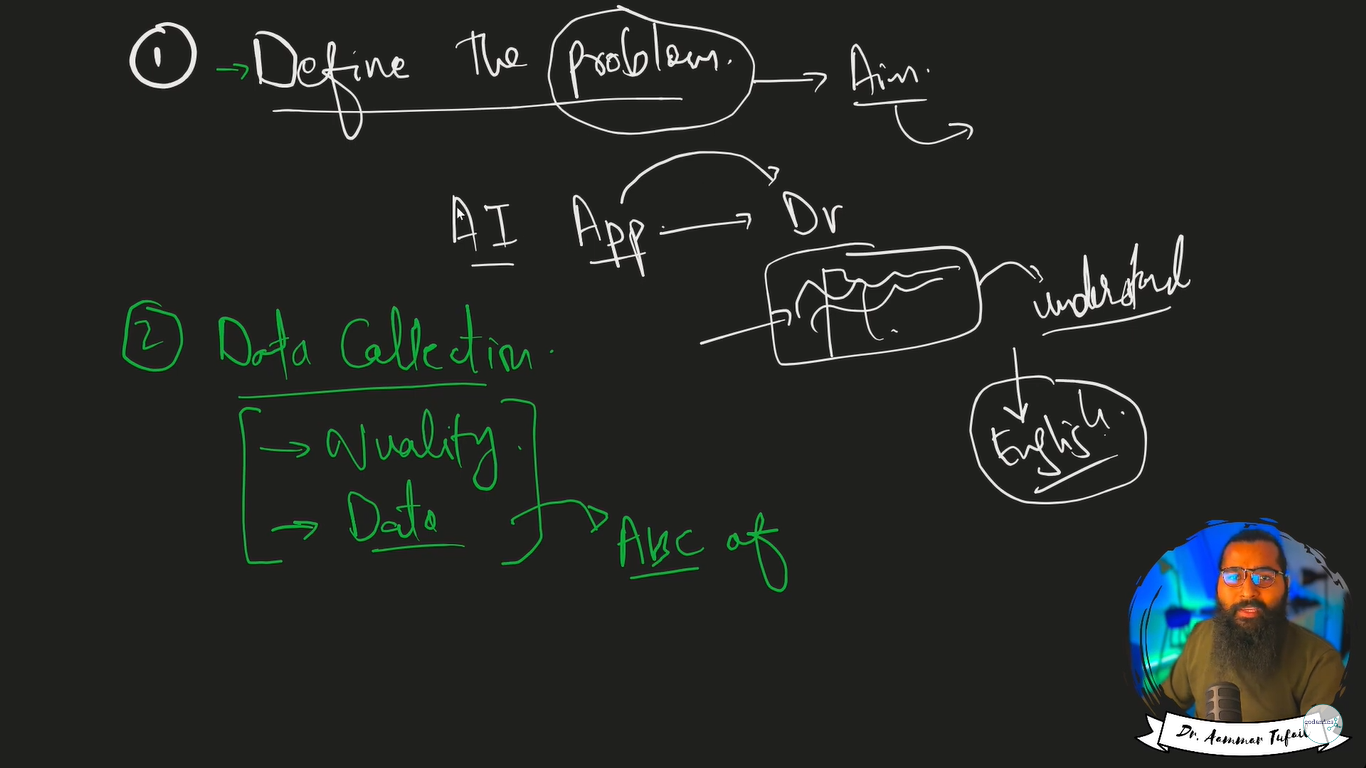 1 → Define the problem. → Aim.
AI App → Dr
understand
English.
2 Data Collection.
→ Quality.
→ Data
ABC of
Dr. Aammar Tufail